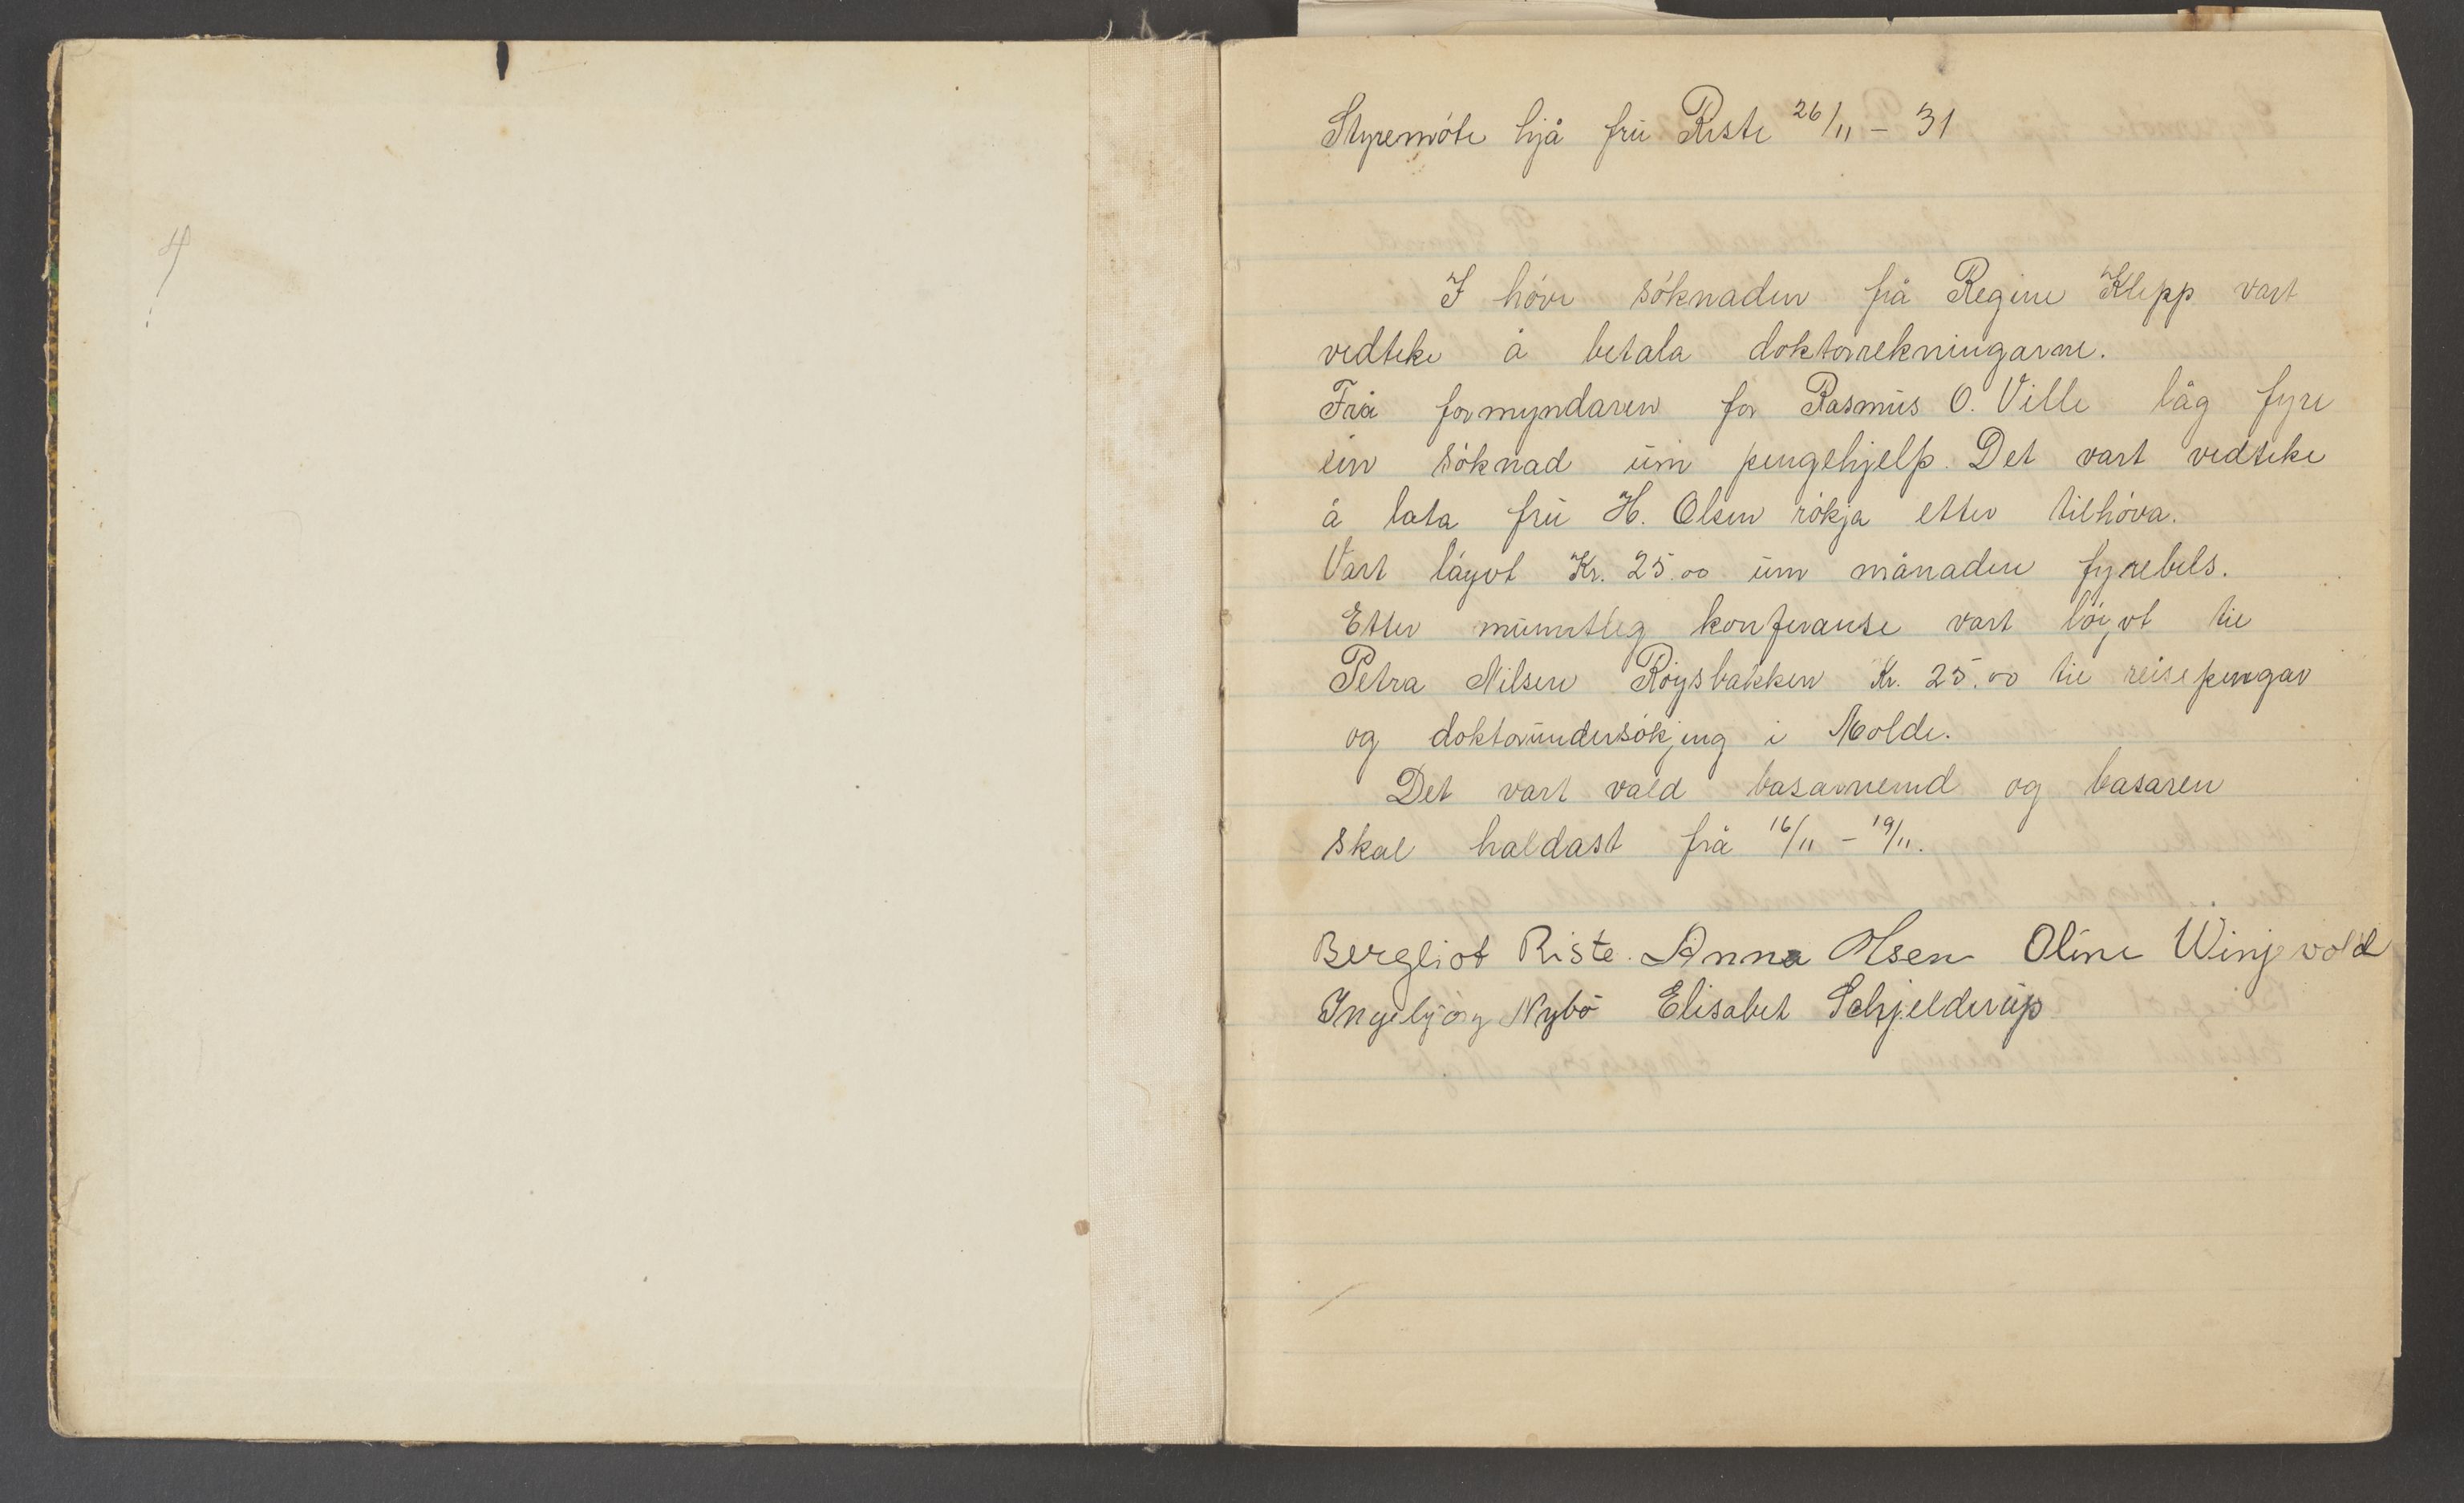 4
Styremöte hjå frü Riste 26/11 - 31
I höve söknaden frå Regine Klepp vart
vedteke å betala doktorrekningarne.
Frå formyndaren for Rasmus O. Ville låg fyre
ein söknad üm pengehjelp. Det vart vedteke
å lata frü H. Olsen rökja etter tilhöva.
Vart löyvt Kr. 25.00 üm månaden fyrebels.
Etter muntleg konferanse vart löyvt til
Petra Nilsen Röysbakken Kr. 25.00 til reisepengar
og doktorundersökjing i Molde.
Det vart vald basarnemnd og basaren
skal haldast frå 16/11 - 19/11.
Bergliot Riste. Anna Olsen Oline Winjevold
Ingebjörg Nybö Elisabet Schjelderüp